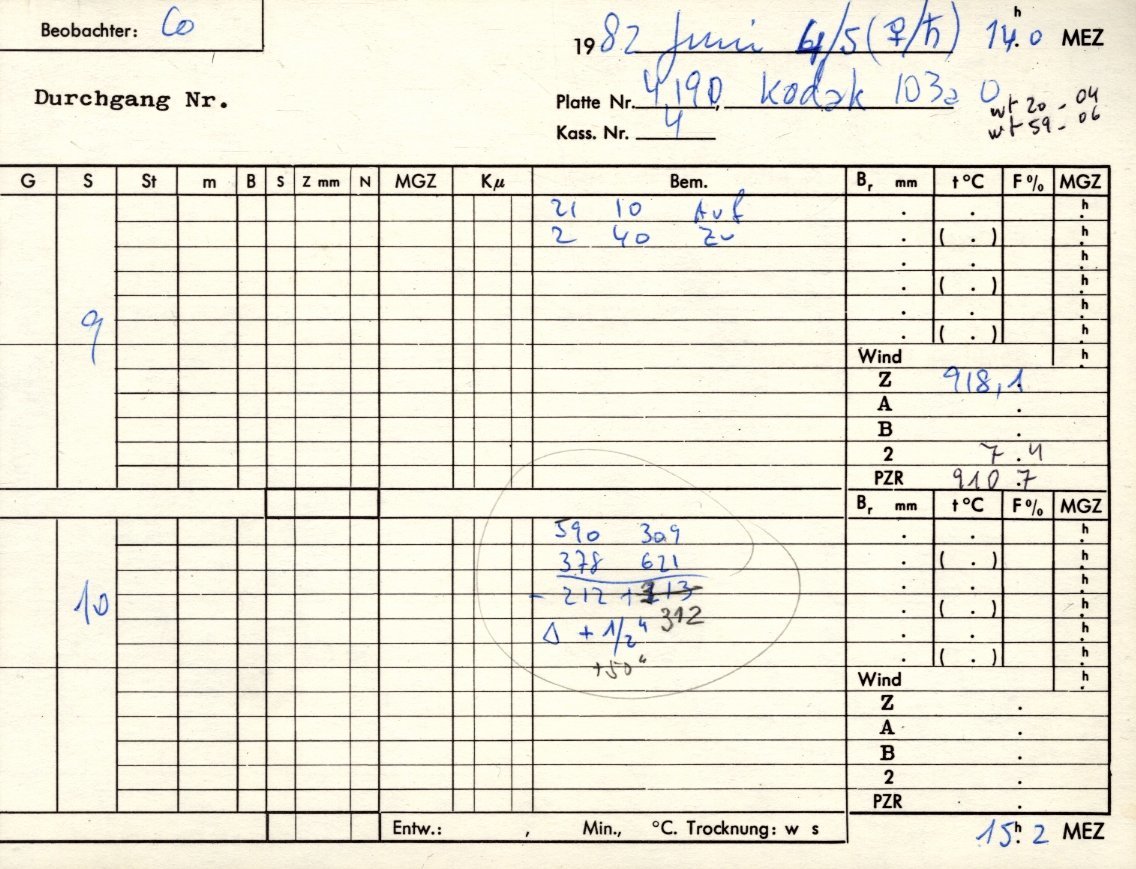 Beobachter: Co
1982 Juni 4/5 (♀/♄) 14.ʰ0 MEZ
Durchgang Nr.
Platte Nr. 4190, Kodak 103a O
wt 20 - 04
Kass. Nr. 4
wt 59 - 06
G S St m B S Z mm N MGZ Kμ Bem. Bᵣ mm t °C F % MGZ
21 10 Auf . . ʰ.
2 40 Zu . ( . ) ʰ.
. . ʰ.
. ( . ) ʰ.
. . ʰ.
9 . ( . ) ʰ.
Wind ʰ.
Z 918,1
A .
B .
2 7.4
PZR 910.7
Bᵣ mm t °C F % MGZ
590 309 . . ʰ.
378 621 . ( . ) ʰ.
10 - 212 + 313 . . ʰ.
312 . ( . ) ʰ.
Δ + 1/2" . . ʰ.
+50" . ( . ) ʰ.
Wind ʰ.
Z .
A .
B .
2 .
PZR .
Entw.: , Min., °C. Trocknung: w s
15.ʰ2 MEZ